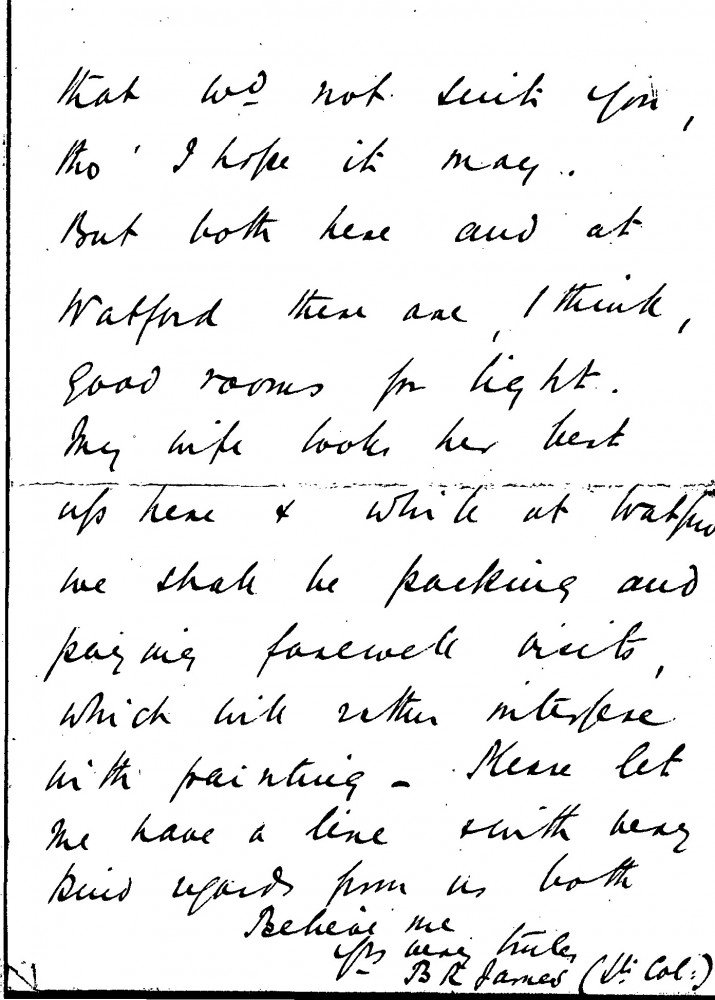 that wd not suit you,
tho' I hope it may.
But both here and at
Watford there are, I think,
good rooms for light.
My wife looks her best
up here & while at Watford
we shall be packing and
paying farewell visits,
which will rather interfere
with painting – Please let
me have a line & with very
kind regards from us both
Believe me
yrs very truly
B R James (Lt: Col:)